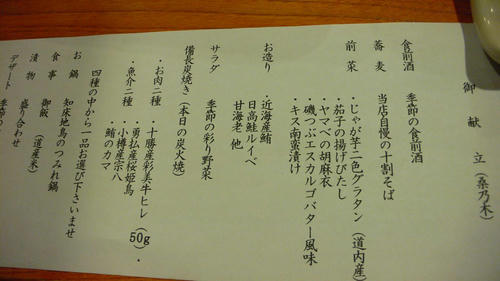 御献立(桑乃木)
食前酒 季節の食前酒
蕎麦 当店自慢の十割そば
前菜 ・じゃが芋二色グラタン(道内産)
・茄子の揚げびたし
・ヤマベの胡麻衣
・磯つぶエスカルゴバター風味
・キス南蛮漬け
お造り ・近海産鮪
日高鮭ルイベ
甘海老 他
サラダ 季節の彩り野菜
備長炭焼き(本日の炭火焼)
・お肉二種 十勝産彩美牛ヒレ(50g)・
・勇払産桜姫鳥
・魚介二種 ・小樽産宗八
・鮪のカマ
四種の中から一品お選び下さいませ
お鍋 知床地鳥のつみれ鍋
食事 御飯 (道産米)
漬物 盛り合わせ
デザート 季節の